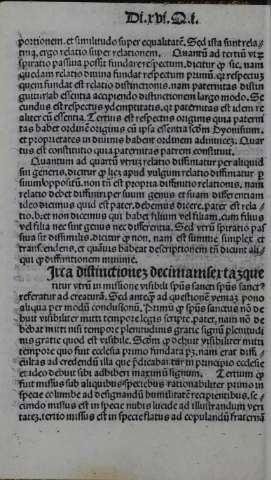 Di. xvi. Q. i.
portionem. et similitudo super equalitatē. Sed ista sunt rela
tiua. ergo relatio super relationem. Quantū ad tertiū vtrū
spiratio passiua possit fundare respectum. dicitur ꝙ sic. nam
quedam relatio diuina fundat respectum primū. et respectus
quem fundat est relatio distinctionis. nam paternitas distin
guitur ab essentia accipiendo distinctionem largo modo. Se
cundus est respectus ydemptitatis. qr paternitas est idem re
aliter cū essentia. Tertius est respectus originis quia paterni
tas habet ordinē originis cū ipsa essentia scđm Dyonisium.
et proprietates in diuinis habent ordinem adinuicē. Quar
tus est constitutio quia paternitas patrem constituit.
Quantum ad quartū vtrū relatio diffiniatur per aliquid
sui generis. dicitur ꝙ licet apud vulgum relatio diffiniatur per
suum oppositū. non tn̄ est propria diffinitio relationis. nam
relatio debet diffiniri per suum genus et suam differentiam
ideo dicimus quid est pater. debemus dicere. pater est rela
tio. hec non dicimus qui habet filium vel filiam. cum filius
vel filia nec sint genus nec differentia. Sed vtrū spiratio pas
siua sit diffinibilis. dicitur ꝙ non. nam est summe simplex et
transcendens. et quāuis habeat descriptionem tn̄ dicunt ali
qui ꝙ diffinitionem minime.
Iuxta distinctionez decimamsextazque
ritur vtrū in missione visibili spūs sancti spūs sanct9
referatur ad creaturā. Sed anteꝙ ad questionē veniaz pono
aliqua per modū conclusionū. Primū ꝙ spūs sanctus nō de
buit visibiliter mitti tempore legis scripte. patet. nam nō de
bebat mitti nisi tempore plenitudinis gratie signū plenitudi
nis gratie quod est visibile. Scđm ꝙ debuit visibiliter mitti
tempore quo fuit ecclesia primo fundata pꝫ. nam erat diffi
cultas ad credendū illa que p̄dicabātur in principio ecclesie
et ideo debuit sibi adhiberi maximū signum. Tertium ꝙ
fuit missus sub aliquibus speciebus rationabiliter primo in
specie columbe ad designandū humilitatē recipientibus. se
cundo missus est in specie nubis lucide ad illustrandum veri
tatez. tertio missus est in specie flatus ad copulandū fraternā